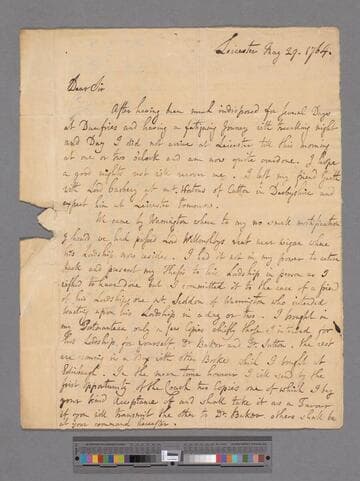 Leicester Aug 29. 1764.
Dear Sir
After having been much indisposed for several Days
at Dumfries and having a fatiguing Journey with travelling night
and Day I did not arrive at Leicester till this morning
at one or two oclock and am now quite overdone. I hope
a good nights rest will recover me. I left my friend
with Lord at Mr. of in Derbyshire and
expect him at Leicester tomorrow.
We came by Warrington where to my no small mortification
I heard we had passed Lord Willoughbys seat near wigan where
his Lordship now resides. I had it not in my power to return
back and present my to his Lordship in person as I
but I committed it to the care of a friend
of his Lordships one Mr. Seddon of Warrington who intended
waiting upon his Lordship in a day or two. I brought in
my Portmanteau only a few Copies chiefly those I intended for
his Lordship, for yourself Dr Baker and Dr. Sutton. the rest
are coming in a Box with other Books which I bought at
Edinburgh. In the mean time however I will send by the
first Opportunity of the Coach two Copies one of which I beg
your kind Acceptance of and shall take it as a Favour
if you will transmit the other to Dr. Baker others shall be
at your command hereafter.